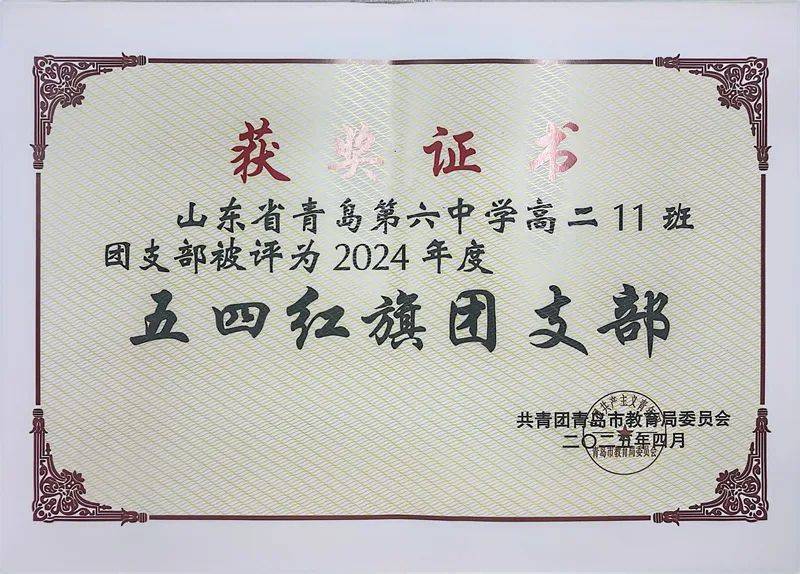 获奖证书
山东省青岛第六中学高二11班
团支部被评为2024年度
五四红旗团支部
共青团青岛市教育局委员会
二〇二五年四月
青岛市教育局委员会